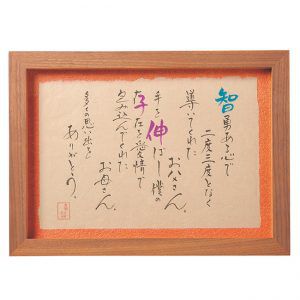 智勇ある心で
二度三度となく
導いてくれた
お父さん。
手を伸ばし僕の
存在を愛情で
包み込んでくれた
お母さん。
多くの思い出を
ありがとう。